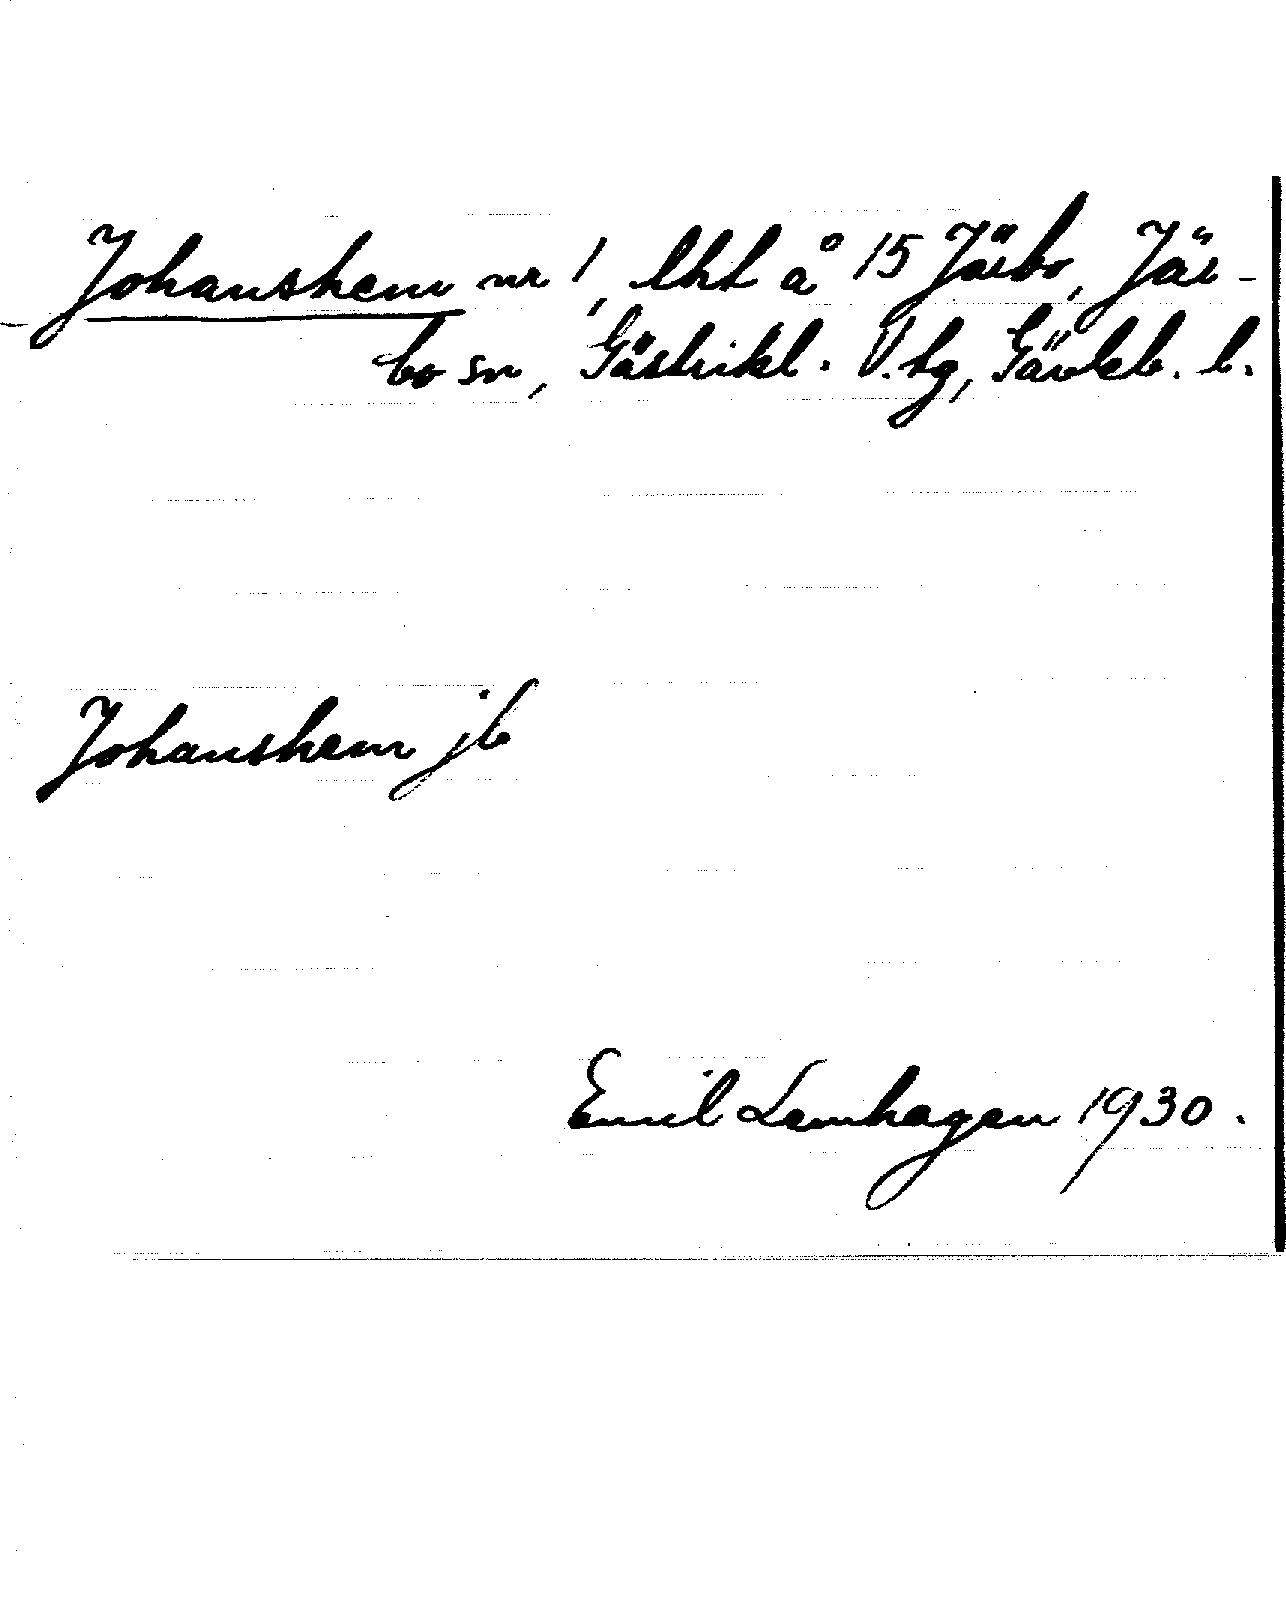 Johanshem nr 1, lht å 15 Järbo, Jär-
bo sn, Gästrikl. V. tg, Gävleb. l.
Johanshem jb
Emil Lemhagen 1930.